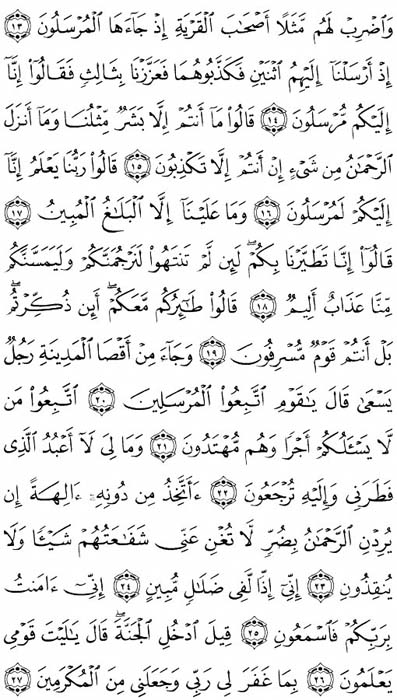 وَٱضْرِبْ لَهُم مَّثَلًا أَصْحَٰبَ ٱلْقَرْيَةِ إِذْ جَآءَهَا ٱلْمُرْسَلُونَ ١٣
إِذْ أَرْسَلْنَآ إِلَيْهِمُ ٱثْنَيْنِ فَكَذَّبُوهُمَا فَعَزَّزْنَا بِثَالِثٍ فَقَالُوٓا۟ إِنَّآ
إِلَيْكُم مُّرْسَلُونَ ١٤ قَالُوا۟ مَآ أَنتُمْ إِلَّا بَشَرٌ مِّثْلُنَا وَمَآ أَنزَلَ
ٱلرَّحْمَٰنُ مِن شَىْءٍ إِنْ أَنتُمْ إِلَّا تَكْذِبُونَ ١٥ قَالُوا۟ رَبُّنَا يَعْلَمُ إِنَّآ
إِلَيْكُمْ لَمُرْسَلُونَ ١٦ وَمَا عَلَيْنَآ إِلَّا ٱلْبَلَٰغُ ٱلْمُبِينُ ١٧
قَالُوٓا۟ إِنَّا تَطَيَّرْنَا بِكُمْ ۖ لَئِن لَّمْ تَنتَهُوا۟ لَنَرْجُمَنَّكُمْ وَلَيَمَسَّنَّكُم
مِّنَّا عَذَابٌ أَلِيمٌ ١٨ قَالُوا۟ طَٰٓئِرُكُم مَّعَكُمْ ۚ أَئِن ذُكِّرْتُم ۚ
بَلْ أَنتُمْ قَوْمٌ مُّسْرِفُونَ ١٩ وَجَآءَ مِنْ أَقْصَا ٱلْمَدِينَةِ رَجُلٌ
يَسْعَىٰ قَالَ يَٰقَوْمِ ٱتَّبِعُوا۟ ٱلْمُرْسَلِينَ ٢٠ ٱتَّبِعُوا۟ مَن
لَّا يَسْـَٔلُكُمْ أَجْرًا وَهُم مُّهْتَدُونَ ٢١ وَمَا لِىَ لَآ أَعْبُدُ ٱلَّذِى
فَطَرَنِى وَإِلَيْهِ تُرْجَعُونَ ٢٢ ءَأَتَّخِذُ مِن دُونِهِۦٓ ءَالِهَةً إِن
يُرِدْنِ ٱلرَّحْمَٰنُ بِضُرٍّ لَّا تُغْنِ عَنِّى شَفَٰعَتُهُمْ شَيْـًٔا وَلَا
يُنقِذُونِ ٢٣ إِنِّىٓ إِذًا لَّفِى ضَلَٰلٍ مُّبِينٍ ٢٤ إِنِّىٓ ءَامَنتُ
بِرَبِّكُمْ فَٱسْمَعُونِ ٢٥ قِيلَ ٱدْخُلِ ٱلْجَنَّةَ ۖ قَالَ يَٰلَيْتَ قَوْمِى
يَعْلَمُونَ ٢٦ بِمَا غَفَرَ لِى رَبِّى وَجَعَلَنِى مِنَ ٱلْمُكْرَمِينَ ٢٧